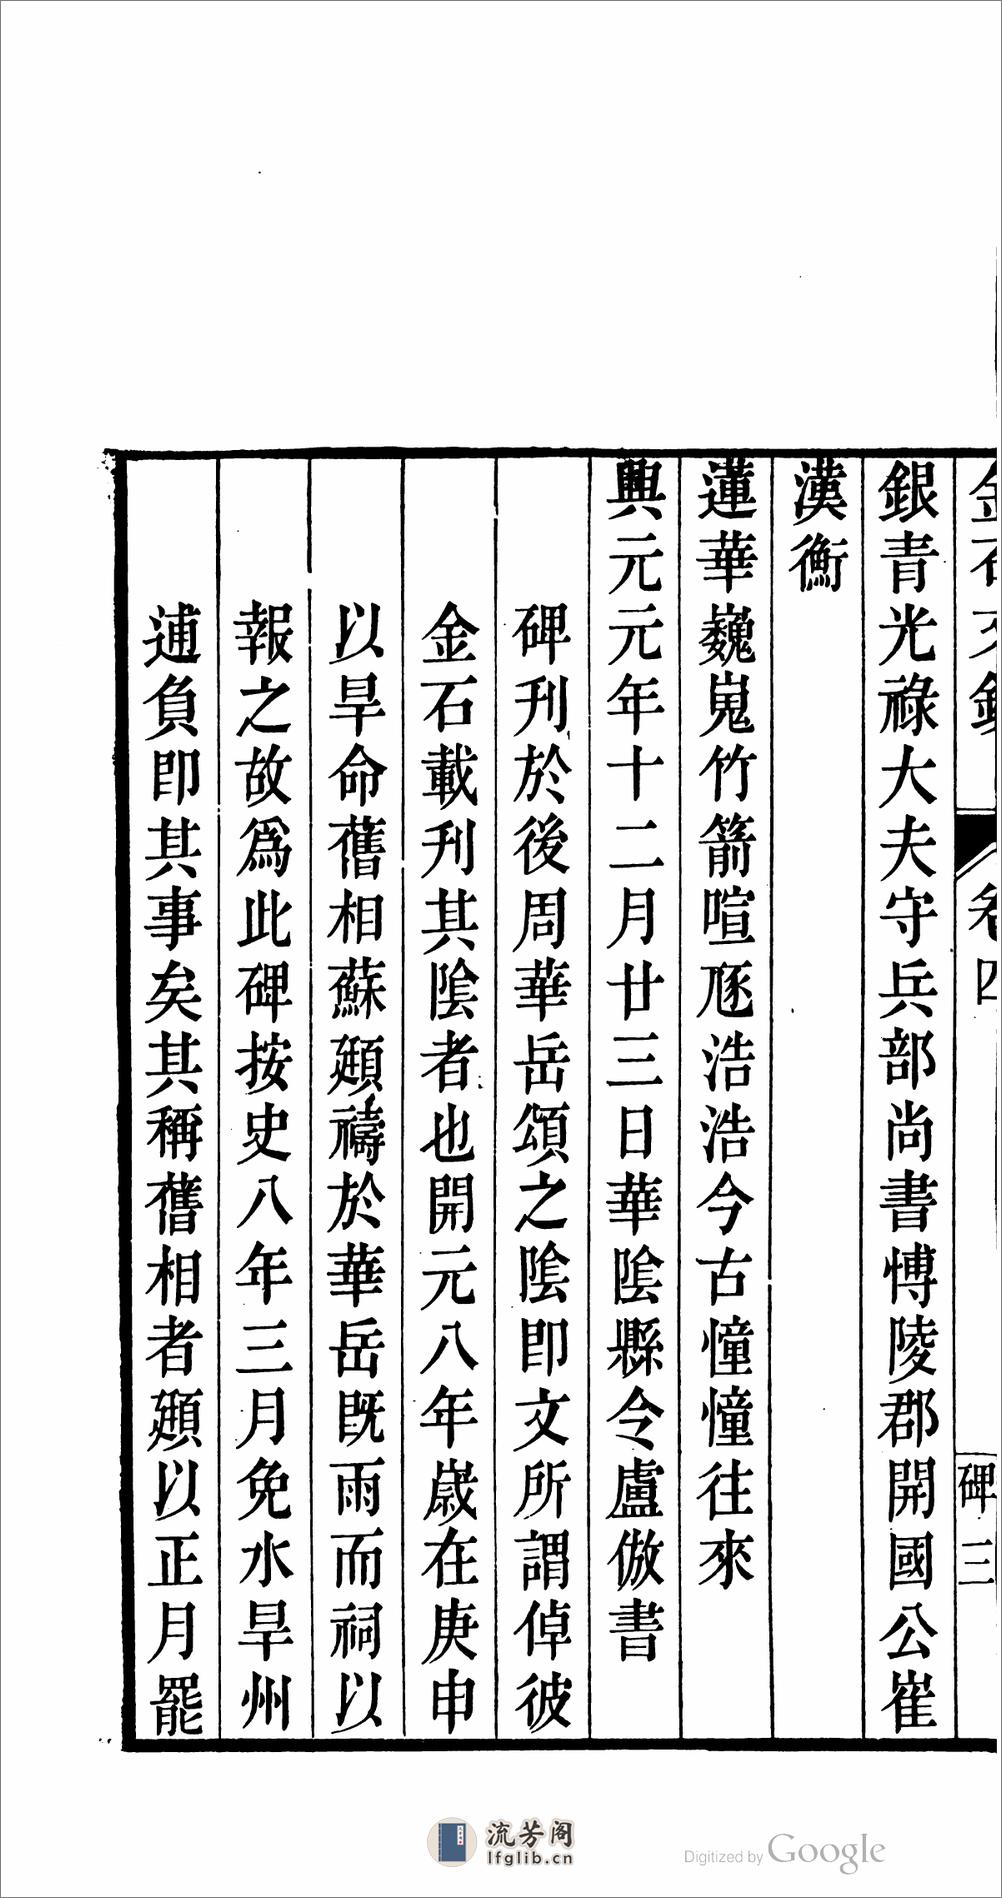 金石文鈔 卷四 碑三
銀青光祿大夫守兵部尚書愽陵郡開國公崔
漢衡
蓮華巍嵬竹箭喧豗浩浩今古憧憧往來
興元元年十二月廿三日華陰縣令盧倣書
碑刋於後周華岳頌之陰即文所謂倬彼
金石載刋其陰者也開元八年嵗在庚申
以旱命舊相蘇頲禱於華岳既雨而祠以
報之故爲此碑按史八年三月免水旱州
逋負即其事矣其稱舊相者頲以正月罷
流芳阁
lfglib.cn
Digitized by Google